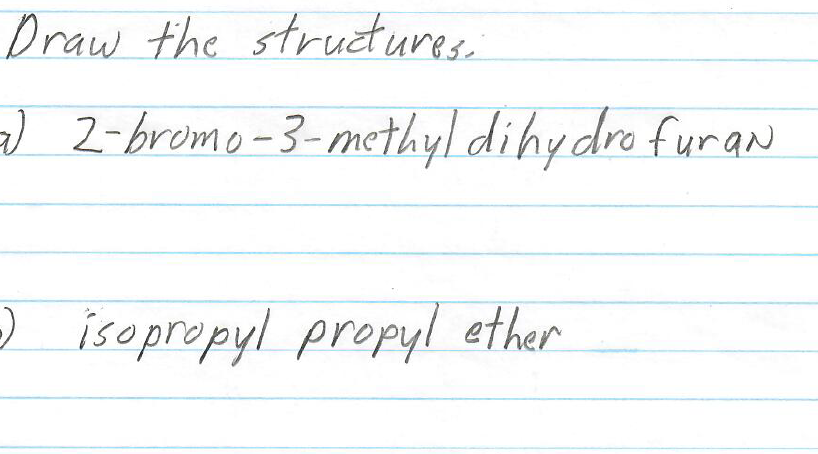 Draw the structures.
a) 2-bromo-3-methyldihydrofuran
) isopropyl propyl ether